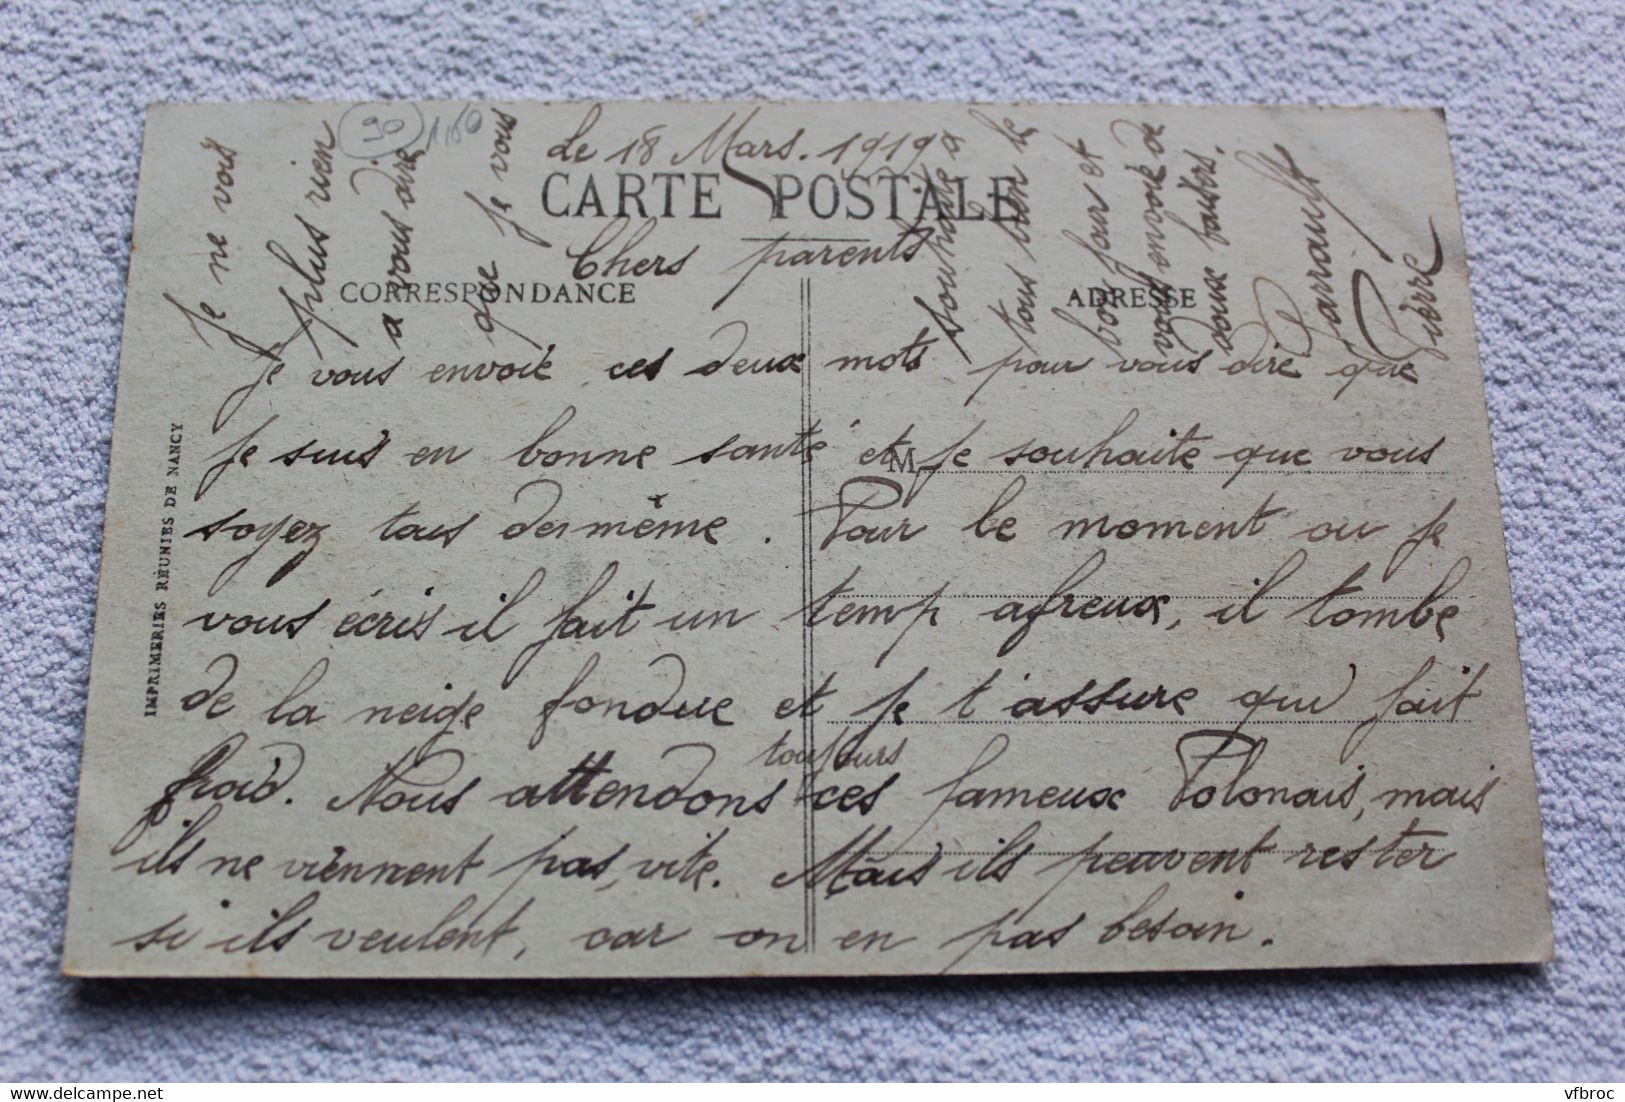 90
Le 18 Mars. 1919
CARTE POSTALE
Chers parents
CORRESPONDANCE
ADRESSE
Je vous envoie ces deux mots pour vous dire que
je suis en bonne santé et je souhaite que vous
M
soyez tous de même. Pour le moment ou je
vous écris il fait un temp afreux, il tombe
de la neige fondue et je t'assure qui fait
froid. Nous attendons toujours ces fameux Polonais, mais
ils ne viennent pas vite. Mais ils peuvent rester
si ils veulent, car on en pas besoin.
Je ne vois
plus rien
a vous dire
que je vous
souhaite a
tous bien le
bonjour et
vous envoie de
doux baisers.
Parrault
Pierre
IMPRIMERIES RÉUNIES DE NANCY
vfbroc